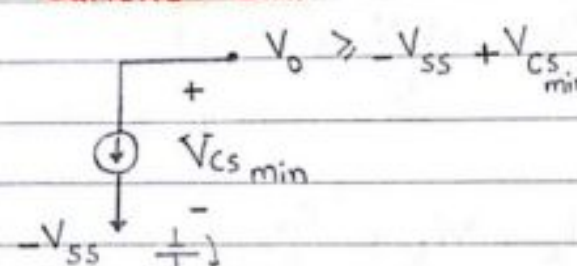 V₀ ⩾ -V_SS + V_CS min
+
V_CS min
-
-V_SS